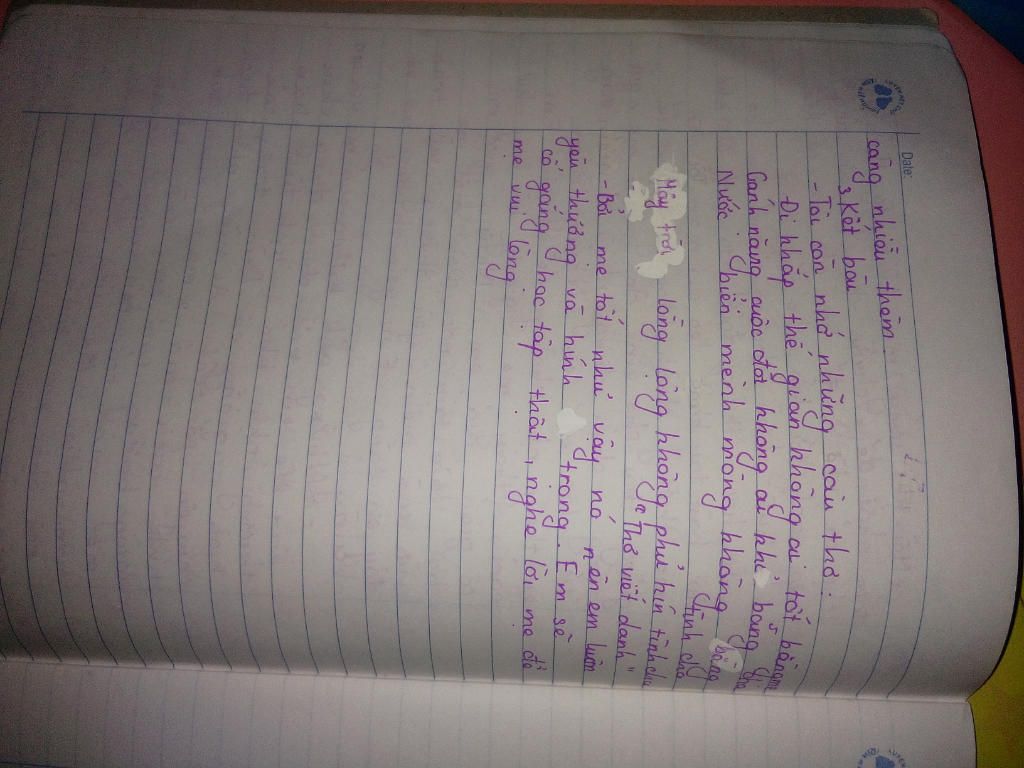 Date:
càng nhiều thêm
3, Kết bài
- Tôi còn nhớ những câu thơ:
Đi khắp thế gian không ai tốt bằng mẹ
Gánh nặng cuộc đời không ai khổ bằng cha
Nước biển mênh mông không
đong đầy tình
Mây trời lồng lộng không phủ kín tình cha
"Thơ viết danh"
- Bởi mẹ tốt như vậy nó nên em luôn
yêu thương và kính trọng. Em sẽ
cố gắng học tập thật, nghe lời mẹ để
mẹ vui lòng.